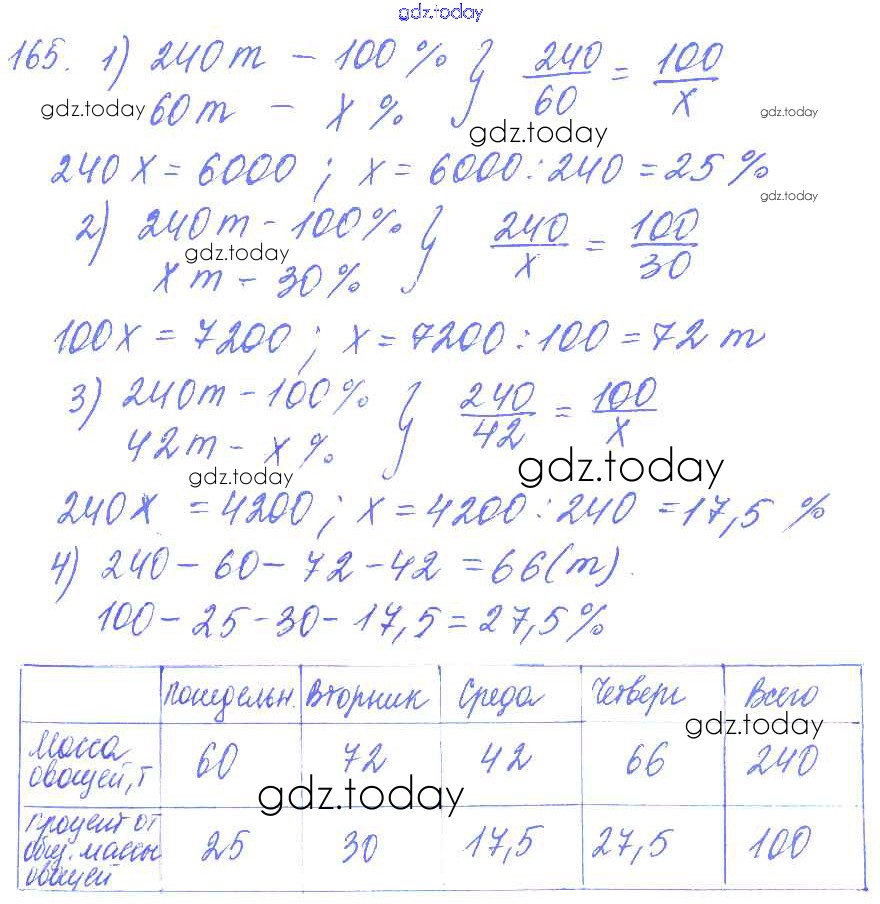 gdz.today
165. 1) 240 т – 100 % } 240/60 = 100/x
gdz.today 60 т – x % gdz.today
gdz.today
240 x = 6000 ; x = 6000 : 240 = 25 %
gdz.today
2) 240 т – 100 % } 240/x = 100/30
gdz.today
x т – 30 %
100x = 7200 ; x = 7200 : 100 = 72 т
3) 240 т – 100 % } 240/42 = 100/x
42 т – x %
gdz.today gdz.today
240x = 4200 ; x = 4200 : 240 = 17,5 %
4) 240 – 60 – 72 – 42 = 66 (т).
100 – 25 – 30 – 17,5 = 27,5 %
Понедельн. Вторник Среда Четверг Всего
gdz.today
Масса овощей, т 60 72 42 66 240
gdz.today
Процент от общ. массы овощей 25 30 17,5 27,5 100